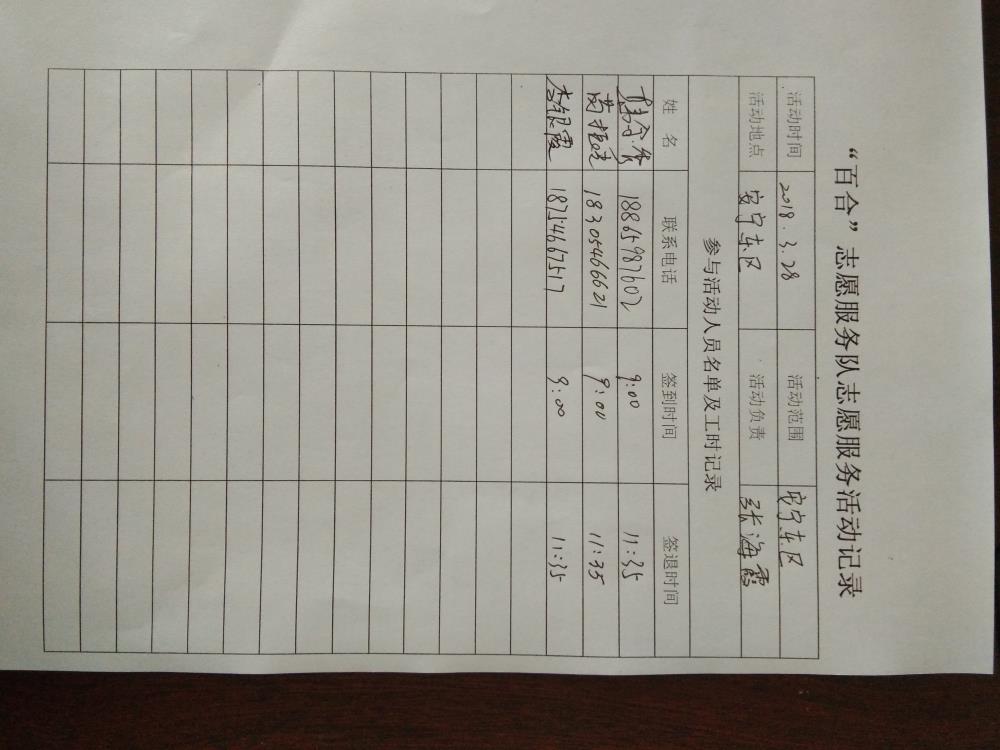 “百合”志愿服务队志愿服务活动记录
活动时间 2018.3.28 活动范围 安宁东区
活动地点 安宁东区 活动负责 张海霞
参与活动人员名单及工时记录
姓 名 联系电话 签到时间 签退时间
18865987602 9:00 11:35
18305466621 9:00 11:35
李银霞 18754667517 9:00 11:35